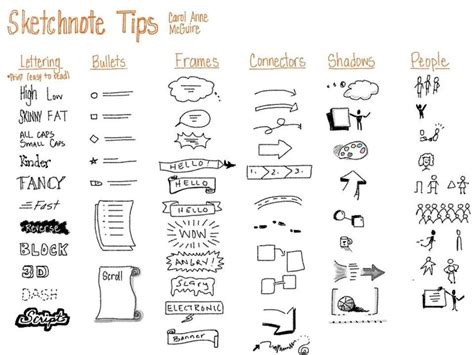 Sketchnote Tips
Carol Anne
McGuire
Lettering
*Print (easy to read)
High Low
SKINNY FAT
ALL CAPS
SMALL CAPS
Kinder
FANCY
Fast
Reverse
BLOCK
3D
DASH
Script
Bullets
Scroll
Frames
HELLO!
HELLO
HELLO
WOW
ANGRY!
SCARY
ELECTRONIC
Banner
Connectors
1. 2. 3.
Shadows
People